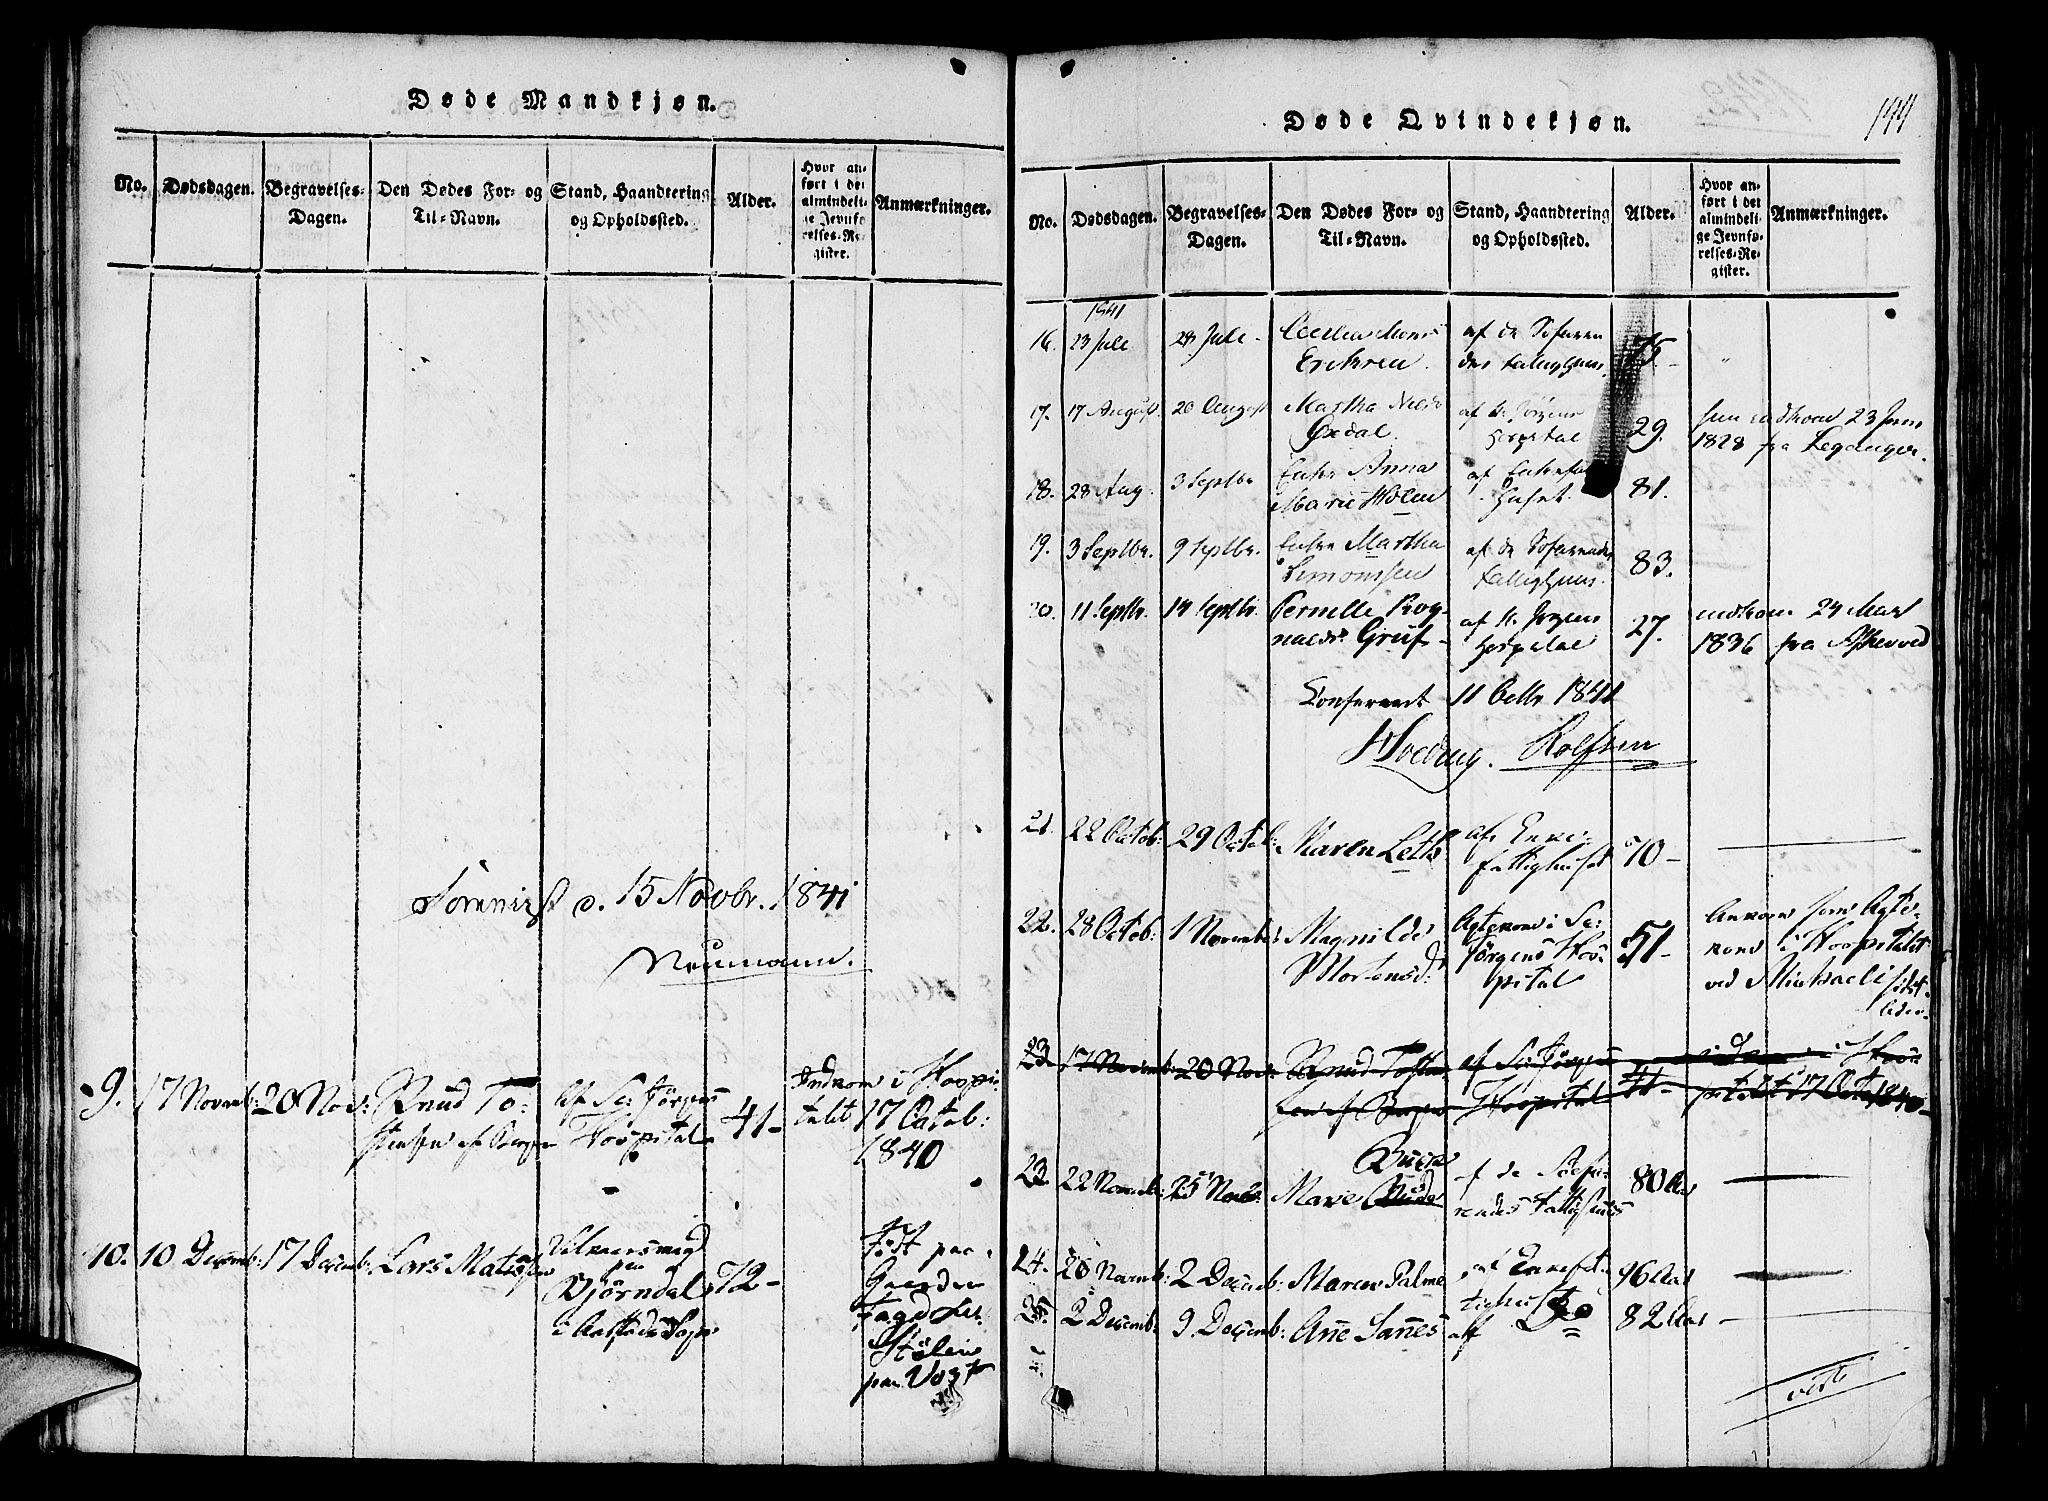 Døde Mandkjøn.
No.
Dødsdagen.
Begravelses-
Dagen.
Den Dødes For- og
Til-Navn.
Stand, Haandtering
og Opholdssted.
Alder.
Hvor an-
ført i det
almindeli-
ge Jevnfø-
relses-Re-
gister.
Anmærkninger.
d. 15 Novbr. 1841
Neumann.
9. 17 Novemb: 20 Nov: Knud To-
stensen af Bergen
Af St: Jørgens
Hospital
41-
Indkom i Hospi-
talet 17 Octob:
1840
10. 10 Decemb: 17 Decemb: Lars
paa
Bjørndal
i Aarstads Sogn
72-
Født paa
Gaarden
Døde Qvindekjøn.
144
No.
Dødsdagen.
Begravelses-
Dagen.
Den Dødes For- og
Til-Navn.
Stand, Haandtering
og Opholdssted.
Alder.
Hvor an-
ført i det
almindeli-
ge Jevnfø-
relses-Re-
gister.
Anmærkninger.
1841
16. 23 Juli 28 Juli Cecilia Mons
Erichsen.
af de Søfaren
des Fattighuus.
75.-
17. 17 August. 20 August Martha Nilsd.
af St. Jørgens
Hospital
29.
indkom 23 Juni
1828 fra Leganger.
18. 28 Aug. 3 Septbr Enke Anna
Marie Holm
af Enkefattig
Huset.
81.
19. 3 Septbr. 9 Septbr. Enke Martha
Simonsen
af de Søfarendes
Fattighuus.
83.
20. 11 Septbr. 14 Septbr. Pernille Rog-
nalds.
af St. Jørgens
Hospital
27.
indkom 24 Mai
1836 fra Askevold
Confereret 11 Octbr 1841
Rolfsen
21. 22 Octob: 29 Octob: Maren Leth
af Enke-
fattighuset
70-
22. 28 Octob: 1 Novemb: Magnilde
Mortensd:
i St:
Jørgens Hos-
pital
51-
Ankom som
i Hospitalet
ved Michaeli sidst-
leden-
23. 17 Novemb: 20 Nov: Knud Tosten-
sen af Bergen
af St: Jørgens
Hospital
41-
indkom i Hos-
pitalet 17 Octob 1840-
23. 22 Novemb: 25 Novb: Marie
af de Søefa-
rendes Fattighuus
80 Aar
24. 26 Novemb: 2 Decemb: Maren Palme
af Enkefat-
tighuset
96 Aar
25. 2 Decemb: 9 Decemb: Ane
af Do
82 Aar
vidt